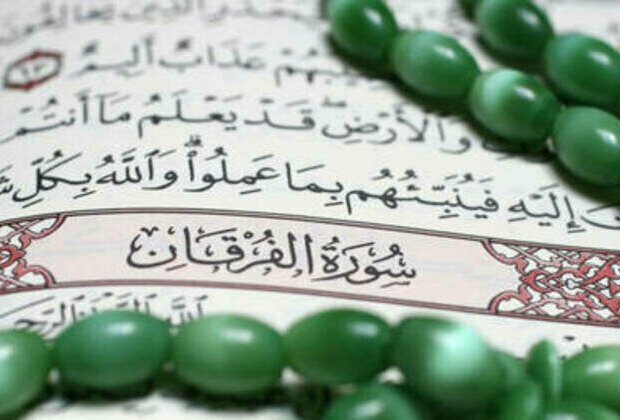 ٱلَّذِينَ يُخَالِفُونَ
عَذَابٌ أَلِيمٌ ٦٣
وَٱلْأَرْضِ قَدْ يَعْلَمُ مَآ أَنتُمْ
إِلَيْهِ فَيُنَبِّئُهُم بِمَا عَمِلُوا۟ۗ وَٱللَّهُ بِكُلِّ
سُورَةُ الْفُرْقَانِ